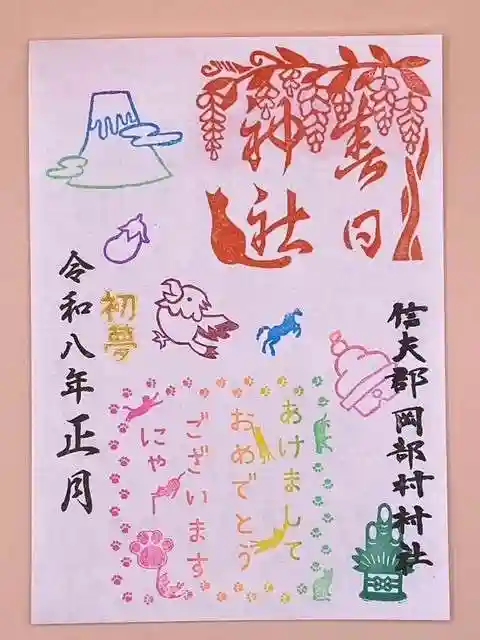 春日
神社
信夫郡岡部村村社
あけまして
おめでとう
ございます
にゃ
初夢
令和八年正月